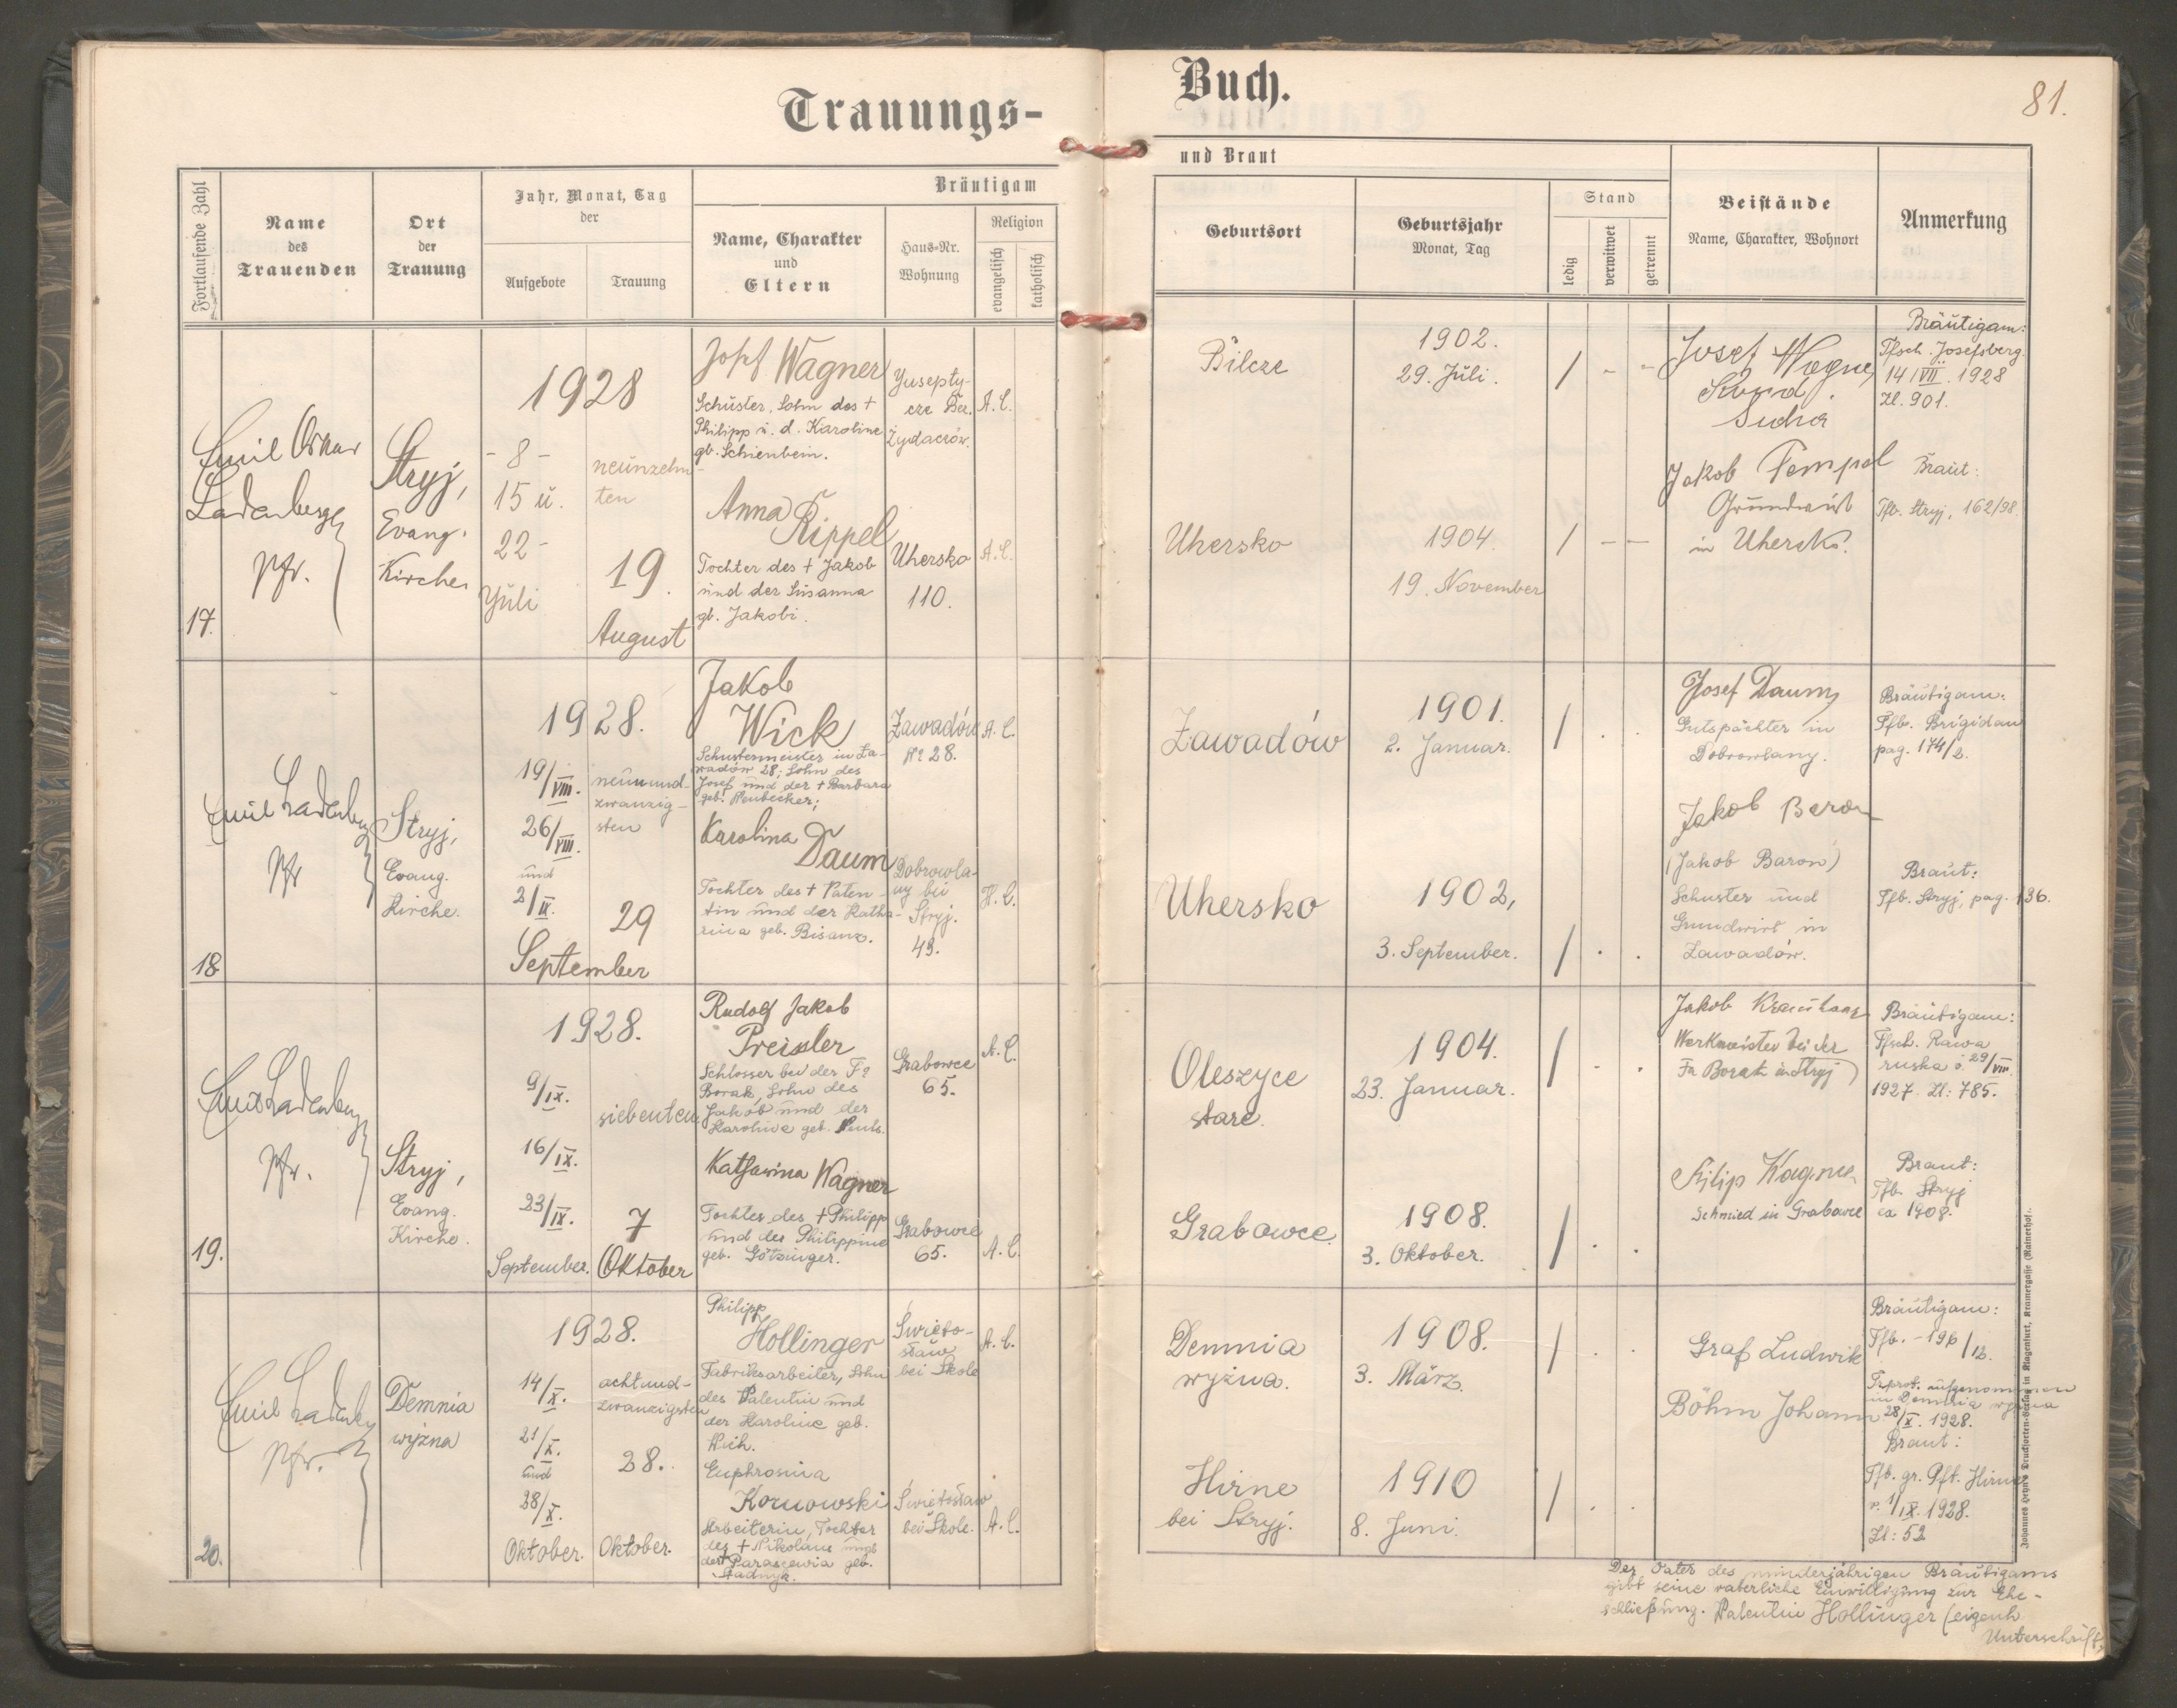 Trauungs-
Buch.
81.
Fortlaufende Zahl
Name
des
Trauenden
Ort
der
Trauung
Jahr, Monat, Tag
der
Aufgebote
Trauung
Bräutigam
Name, Charakter
und
Eltern
Haus-Nr.
Wohnung
Religion
evangelisch
katholisch
und Braut
Geburtsort
Geburtsjahr
Monat, Tag
Stand
ledig
verwitwet
getrennt
Beistände
Name, Charakter, Wohnort
Anmerkung
17.
Emil Oskar
Ladenberger
Pfr.
Stryj,
Evang.
Kirche
1928
- 8 -
15 u.
22 -
Juli
neunzehn-
ten
19.
August
Josef Wagner
Schuster, Sohn des +
Philipp u. d. Karoline
gb. Schienbein.
Jusepty-
cze Bez.
Żydaczów.
A. C.
Anna
Rippel
Tochter des + Jakob
und der Susanna
gb. Jakobi.
Uhersko
110.
A. C.
Bilcze
1902.
29. Juli.
/ - -
Uhersko
1904.
19. November
/ - -
Josef Wagner
Sucha
Jakob Tempel
Grundwirt
in Uhersko.
Bräutigam:
Tfsch. Josefsberg
14/VII. 1928
Zl. 901.
Braut:
Tfb. Stryj, 162/98.
18.
Emil Ladenberger
Pfr
Stryj,
Evang.
Kirche.
1928.
19/VIII.
26/VIII.
und
2/IX.
neunund-
zwanzig-
sten
29
September
Jakob
Wick
Schustermeister in Za-
wadów 28; Sohn des
Josef und der + Barbara
geb. Neubecker;
Zawadów
No 28.
A. C.
Karolina
Daum
Tochter des + Valen-
tin und der Katha-
rina geb. Bisanz.
Dobrowla-
ny bei
Stryj.
49.
H. C.
Zawadów
1901.
2. Januar.
/ . .
Uhersko
1902,
3. September.
/ . .
Josef Daum
Gutspächter in
Dobrowlany.
Jakob Baron
(Jakob Baron)
Schuster und
Grundwirt in
Zawadów.
Bräutigam:
Tfb. Brigidau
pag. 174/2.
Braut:
Tfb. Stryj, pag. 136.
19.
Emil Ladenberger
Pfr.
Stryj,
Evang.
Kirche.
1928.
9/IX.
16/IX.
23/IX.
September.
siebenten
7
Oktober
Rudolf Jakob
Preisler
Schlosser bei der Fa
Borak, Sohn des
Jakob und der
Karoline geb.
Grabowce
65.
A. C.
Katharina Wagner
Tochter des + Philipp
und der Philippine
geb. Götzinger.
Grabowce
65.
A. C.
Oleszyce
stare.
1904.
23. Januar.
/ . .
Grabowce.
1908.
3. Oktober.
/ . .
Jakob Krauthaar
Werkmeister bei der
Fa Borak in Stryj
Filip Wagner
Schmied in Grabowce
Bräutigam:
Tfsch. Rawa
ruska v. 29/VIII.
1927. Zl: 785.
Braut:
Tfb. Stryj
ca 1908.
20.
Emil Ladenberger
Pfr.
Demnia
wyżna
1928.
14/X.
21/X.
und
28/X.
Oktober.
achtund-
zwanzigsten
28.
Oktober.
Philipp
Hollinger
Fabriksarbeiter, Sohn
des Valentin und
der Karoline geb.
Świeto-
sław
bei Skole
A. C.
Euphrosina
Kornowski
Arbeiterin, Tochter
des + Nikolaus und
der + Paraszewia geb.
Stadnyk.
Świetosław
bei Skole.
A. C.
Demnia
wyżna.
1908.
3. März.
/ . .
Hirne
bei Stryj.
1910
8. Juni.
/ . .
Graf Ludwik
Böhm Johann
Bräutigam:
Tfb. - 196/12.
Trprot. aufgenommen
in Demnia wyżna
28/X. 1928.
Braut:
Tfb. gr. Pft. Hirne
v. 1/IX. 1928.
Zl: 52
Der Vater des minderjährigen Bräutigams
gibt seine väterliche Einwilligung zur Ehe-
schließung. Valentin Hollinger (eigenh.
Unterschrift)
Johannes Heyn's Drucksorten-Verlag in Klagenfurt, Kramergasse (Rainerhof).